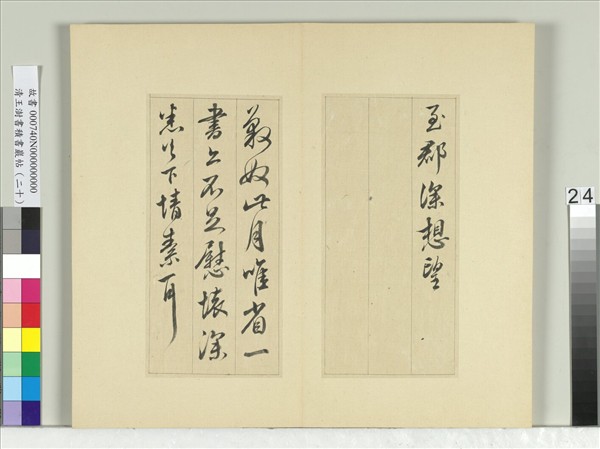 至郡深想望
敬如此月唯省一
書亦不足慰懷深
悉以下情素耳
故書 000740N000000000
清王澍書積書巖帖(二十)
24